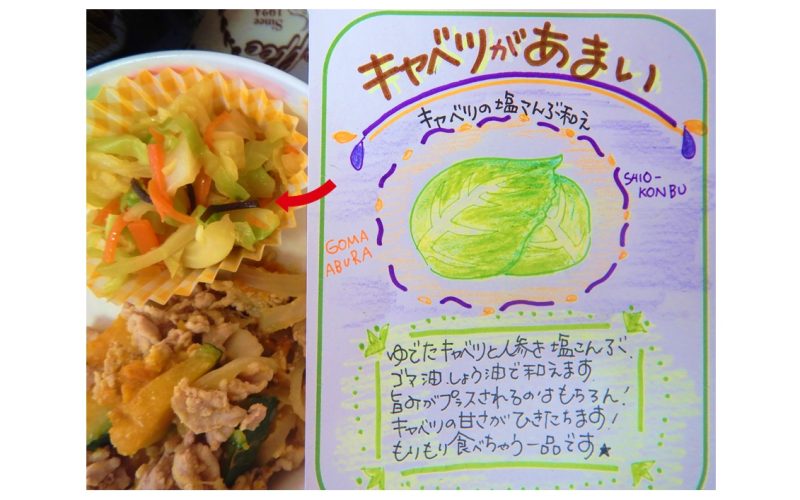 Since
1894
キャベツがあまい
キャベツの塩こんぶ和え
SHIO-
KONBU
GOMA
ABURA
ゆでたキャベツと人参を塩こんぶ、
ゴマ油、しょう油で和えます。
旨みがプラスされるのはもちろん!
キャベツの甘さがひきたちます!
もりもり食べちゃう一品です★